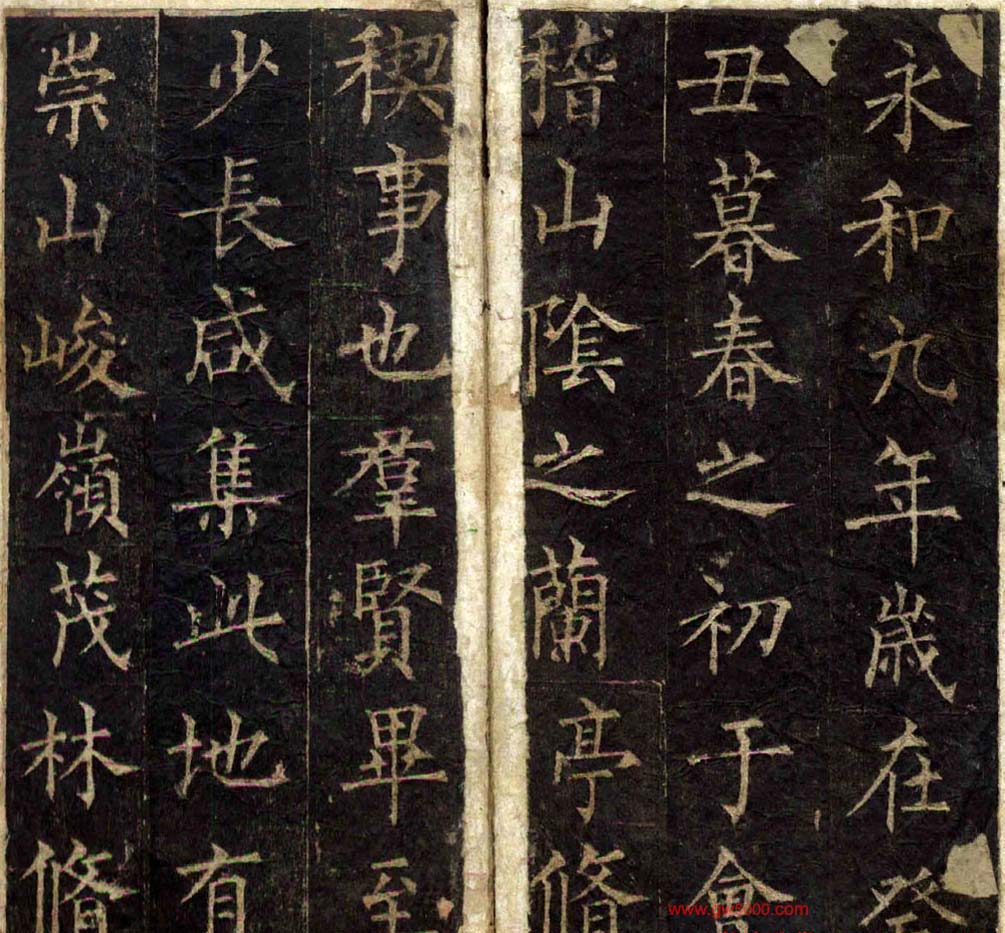 永和九年歲在癸
丑暮春之初于會
稽山陰之蘭亭脩
稧事也羣賢畢至
少長咸集此地有
崇山峻嶺茂林脩
www.gy5000.com